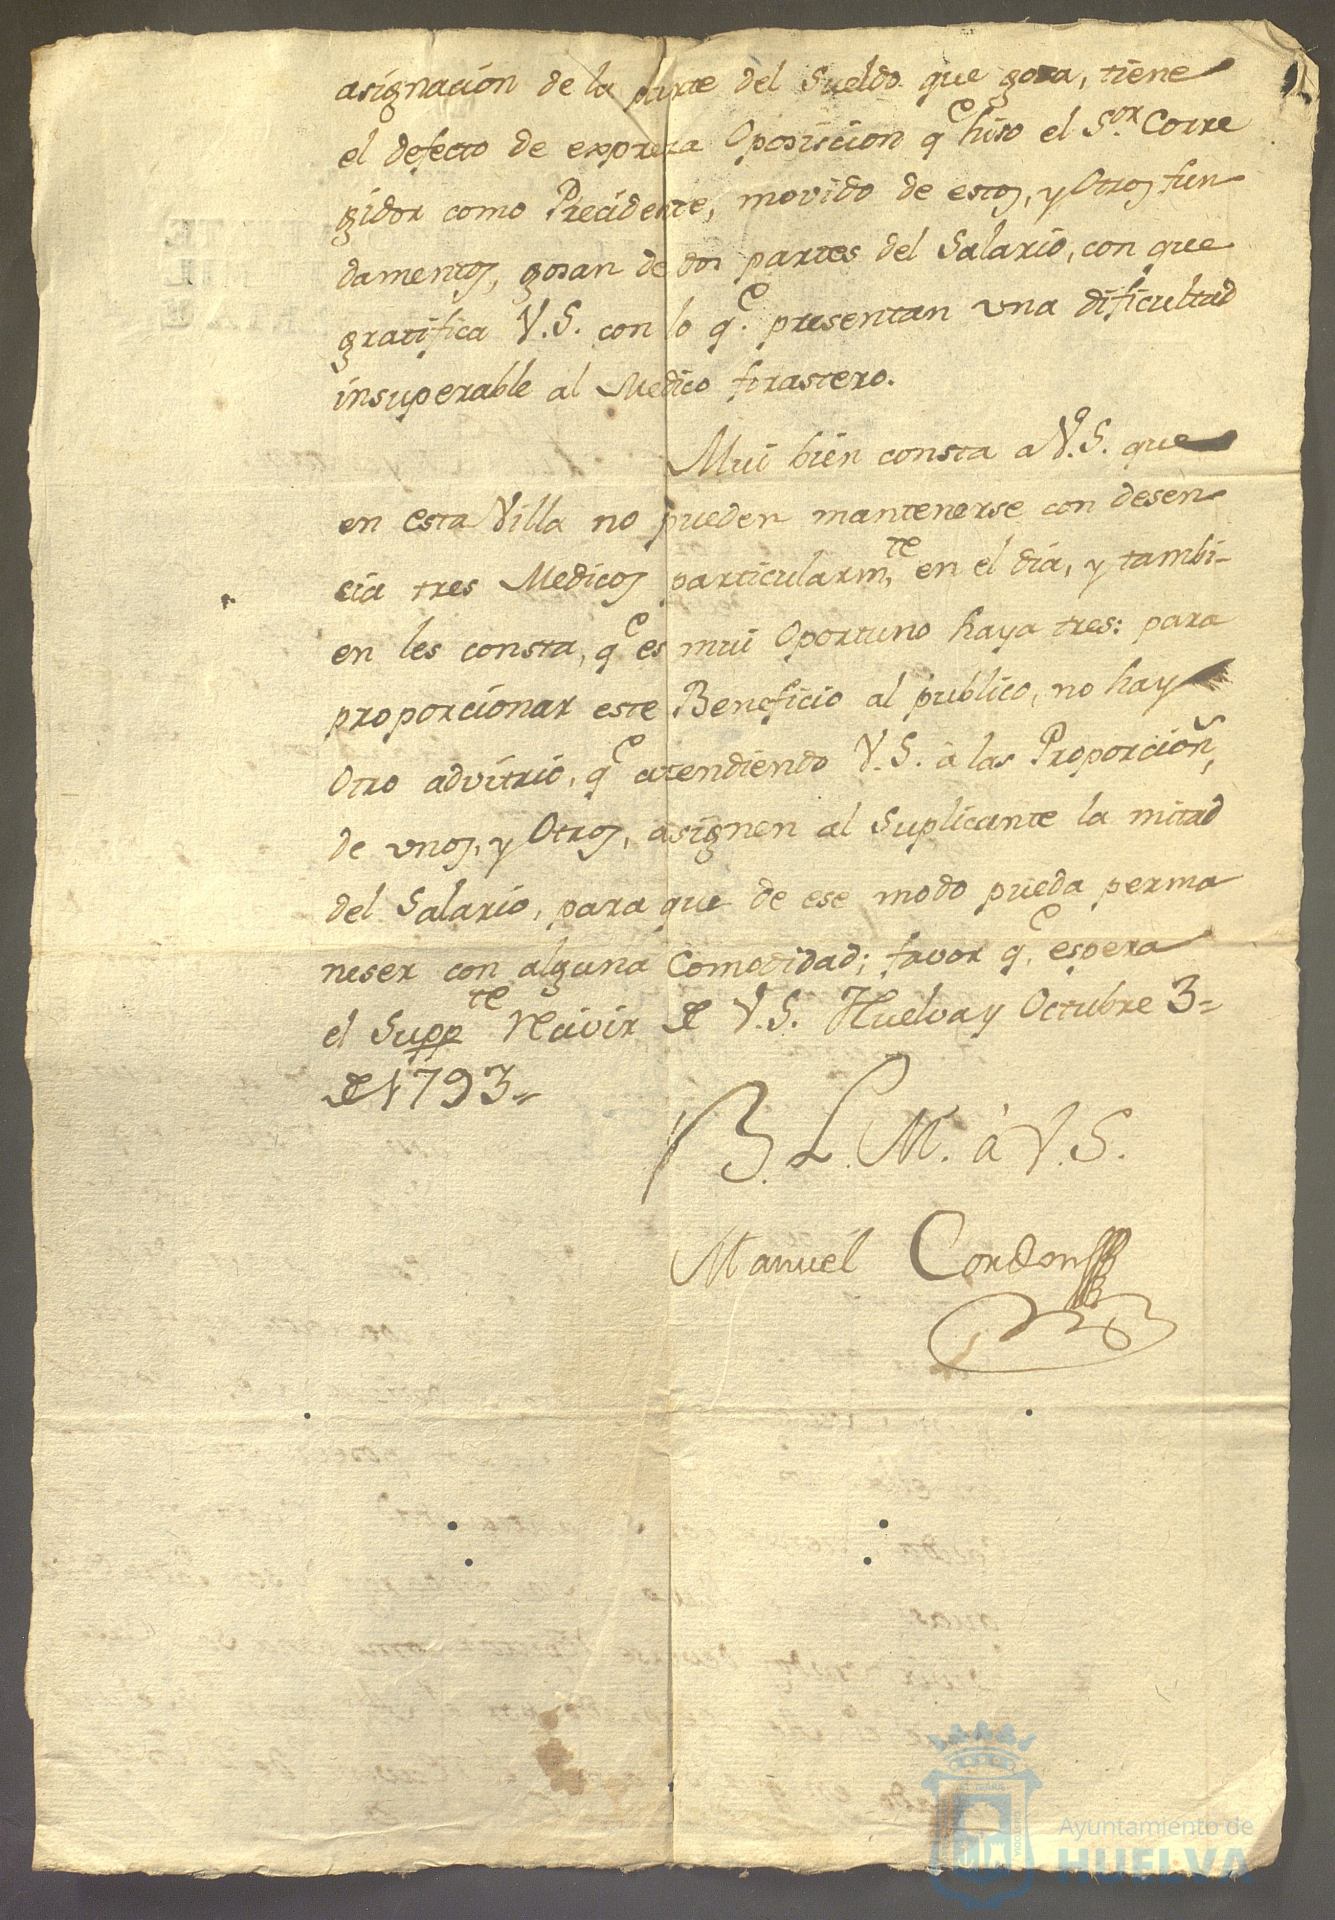 asignacion de la parte del Sueldo que gosa, tiene
el defecto de expresa Oposiscion q.e hiso el S.or Corre
gidor como Precidente, movido de estos, y Otros fun
damentos, gosan de dos partes del Salario, con que
gratifica V.S. con lo q.e presentan una dificultad
insuperable al Medico forastero.
Mui bien consta a V.S. que
en esta Villa no pueden mantenerse con desen
cia tres Medicos particularm.te en el dia, y tambi-
en les consta, q.e es mui Oportuno haya tres: para
proporcionar este Beneficio al publico, no hay
Otro advitrio, q.e atendiendo V.S. à las Proporcion.s
de unos, y Otros, asignen al Suplicante la mitad
del Salario, para que de ese modo pueda perma
neser con alguna Comodidad; favor q.e espera
el Supp.te recivir de V.S. Huelva y Octubre 3=
de 1793=
B. L. M. à V.S.
Manuel Cordon
Ayuntamiento de
HUELVA